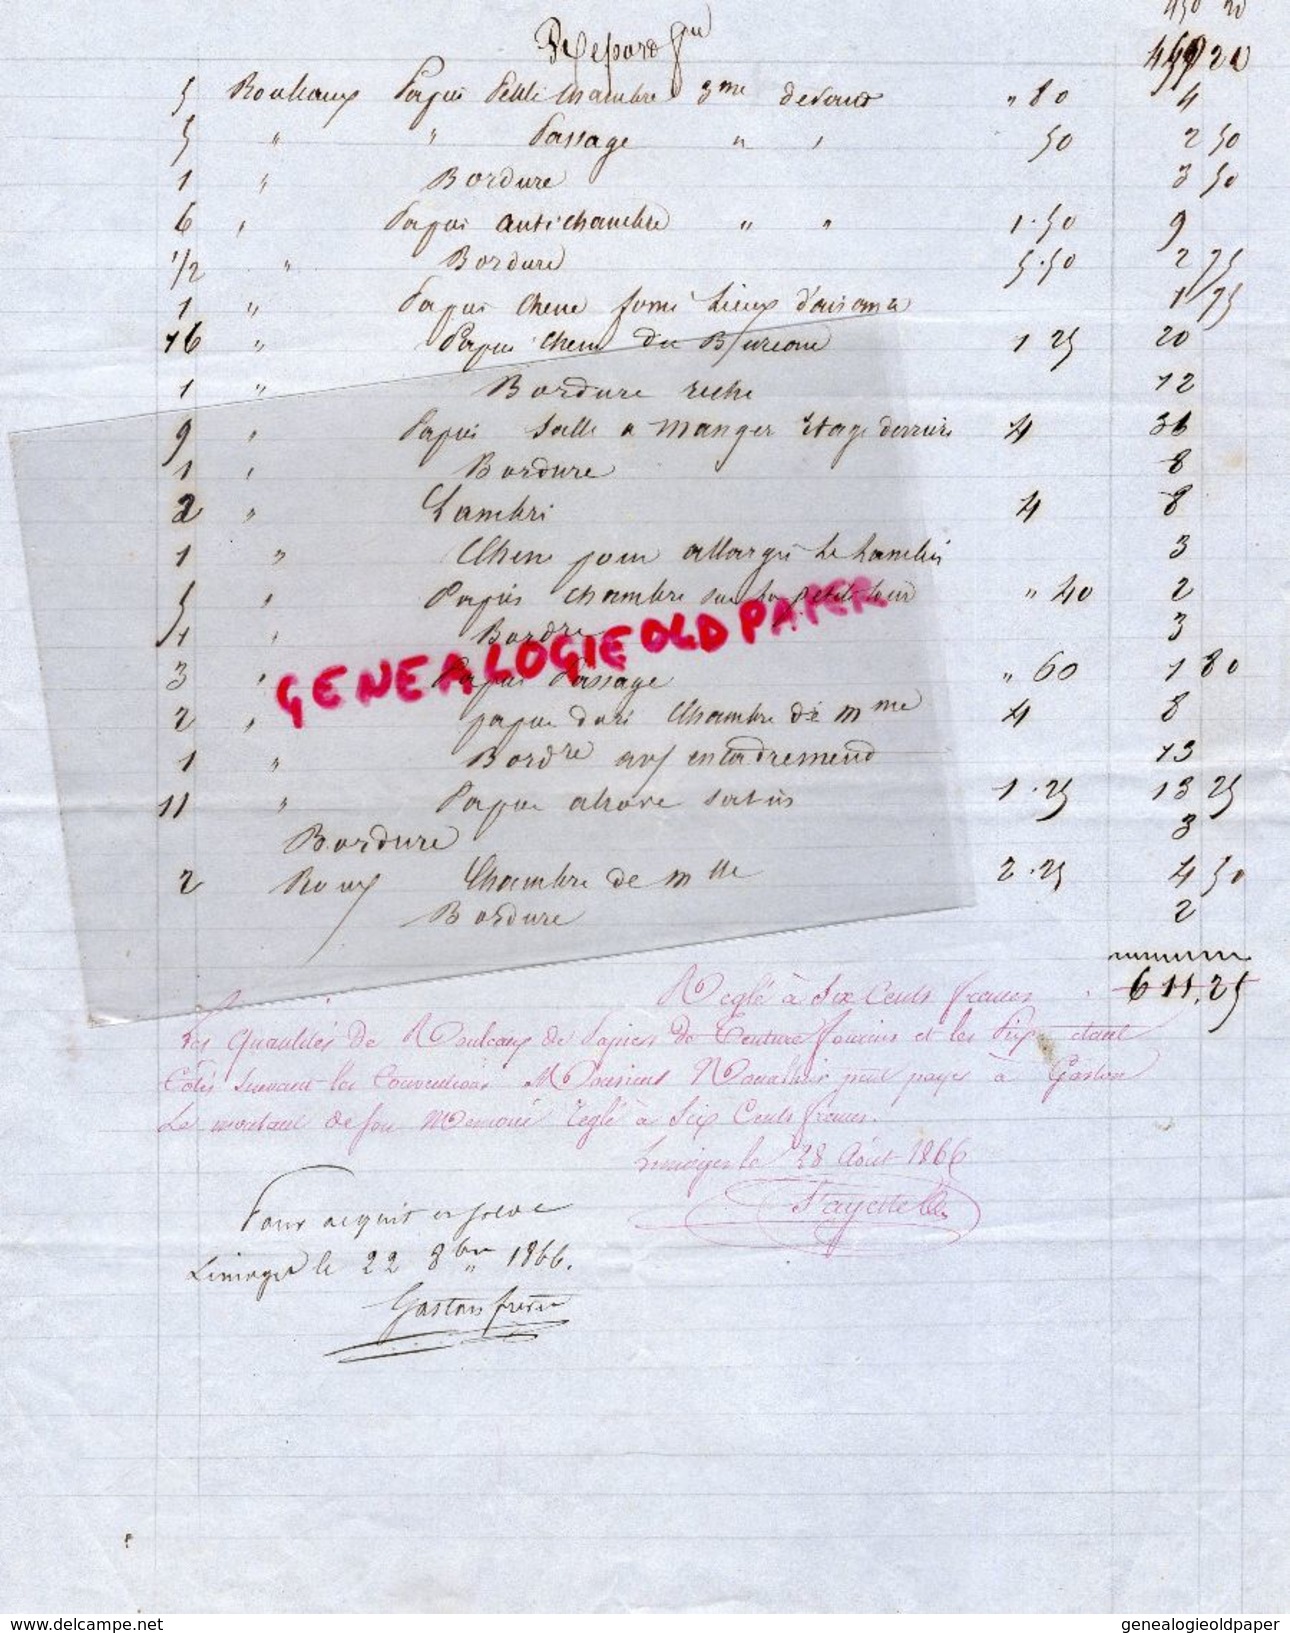 450 20
Report
20
5 Rouleaux Papier Petite Chambre 3me devant " 80 4
5 " " Passage " " 50 2 50
1 " Bordure 3 50
6 " Papier antichambre " " 1.50 9
1/2 " Bordure 5.50 2 75
1 " Papier Chene Lieux d'aisance 1 75
16 " Papier Chene du Bureau 1 25 20
1 " Bordure riche 12
9 " Papier Salle a manger Etage derriere 4 36
1 " Bordure 8
2 " Lambri 4 8
1 " Chene pour allargir le Lambri 3
5 " Papier Chambre sur la petite Cour " 40 2
1 " Bordre 3
3 " Papier Passage " 60 1 80
2 " papier doré Chambre de mme 4 8
1 " Bordre avec encadremend 13
11 " Papier satin 1.25 13 25
Bordure 3
2 Roux Chambre de mlle 2.25 4 50
Bordure 2
Reglé à Six Cents francs 611,25
Les Quantités de Rouleaux de Papiers de Tenture fournis et les Prix étant
Cotés suivant les Conventions Monsieur peut payer à Gaston
Le montant de son Memoire reglé à Six Cents francs.
Limoges le 28 Août 1866
Fayette
Pour acquit
Limoges le 22 8bre 1866.
Gaston freres
GENEALOGIE OLD PAPER
www.delcampe.net
genealogieoldpaper